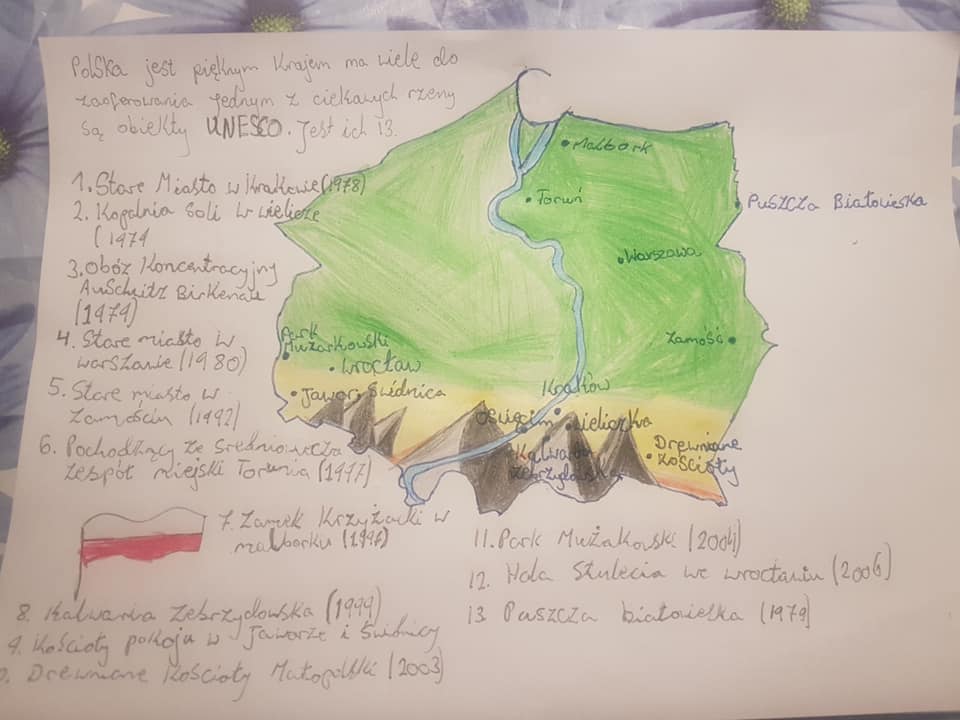 Polska jest pięknym krajem ma wiele do
zaoferowania jednym z ciekawych rzeny
są obiekty UNESCO. Jest ich 13.
1. Stare Miasto w Krakowie (1978)
2. Kopalnia Soli w wieliczce
(1979
3. Obóz Koncentracyjny
Auschwitz Birkenau
(1979)
4. Stare miasto w
warszawie (1980)
5. Stare miasto w
Zamościu (1992)
6. Pochodzący ze średniowiecza
zespół miejski Torunia (1977)
7. Zamek Krzyżacki w
malborku (1996)
8. Kalwaria Zebrzydowska (1999)
9. Kościoły pokoju w Jaworze i Świdnicy
Drewniane Kościoły Małopolski (2003)
11. Park Mużakowski (2004)
12. Hala Stulecia we wrocławiu (2006)
13. Puszcza białowieska (1979)
Malbork
Toruń
Puszcza Białowieska
Warszawa
Zamość
Park
Mużarkowski
wrocław
Jawor Świdnica
Kraków
Oświęcim
wieliczka
Kalwaria
zebrzydowska
Drewniane
Kościoły